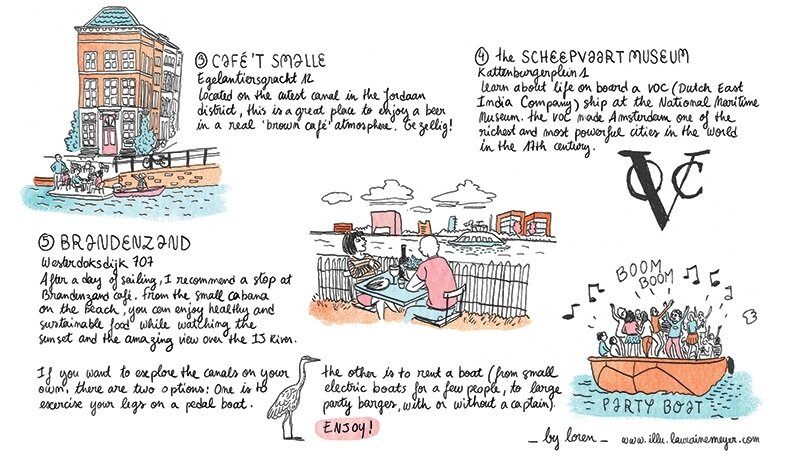 ③ CAFÉ 'T SMALLE
Egelantiersgracht 12
Located on the cutest canal in the Jordaan
district, this is a great place to enjoy a beer
in a real 'brown café' atmosphere. Gezellig!
④ the SCHEEPVAART MUSEUM
Kattenburgerplein 1
learn about life on board a VOC (Dutch East
India Company) ship at the National Maritime
Museum. the VOC made Amsterdam one of the
richest and most powerful cities in the world
in the 17th century.
VOC
⑤ BRANDENZAND
Westerdoksdijk 707
After a day of sailing, I recommend a stop at
Brandenzand café. from the small cabana
on the beach, you can enjoy healthy and
sustainable food while watching the
sunset and the amazing view over the IJ River.
BOOM
BOOM
PARTY BOAT
If you want to explore the canals on your
own, there are two options: One is to
exercise your legs on a pedal boat.
the other is to rent a boat (from small
electric boats for a few people, to large
party barges, with or without a captain).
ENJOY!
_ by loren _ www.illu.laurainemeyer.com